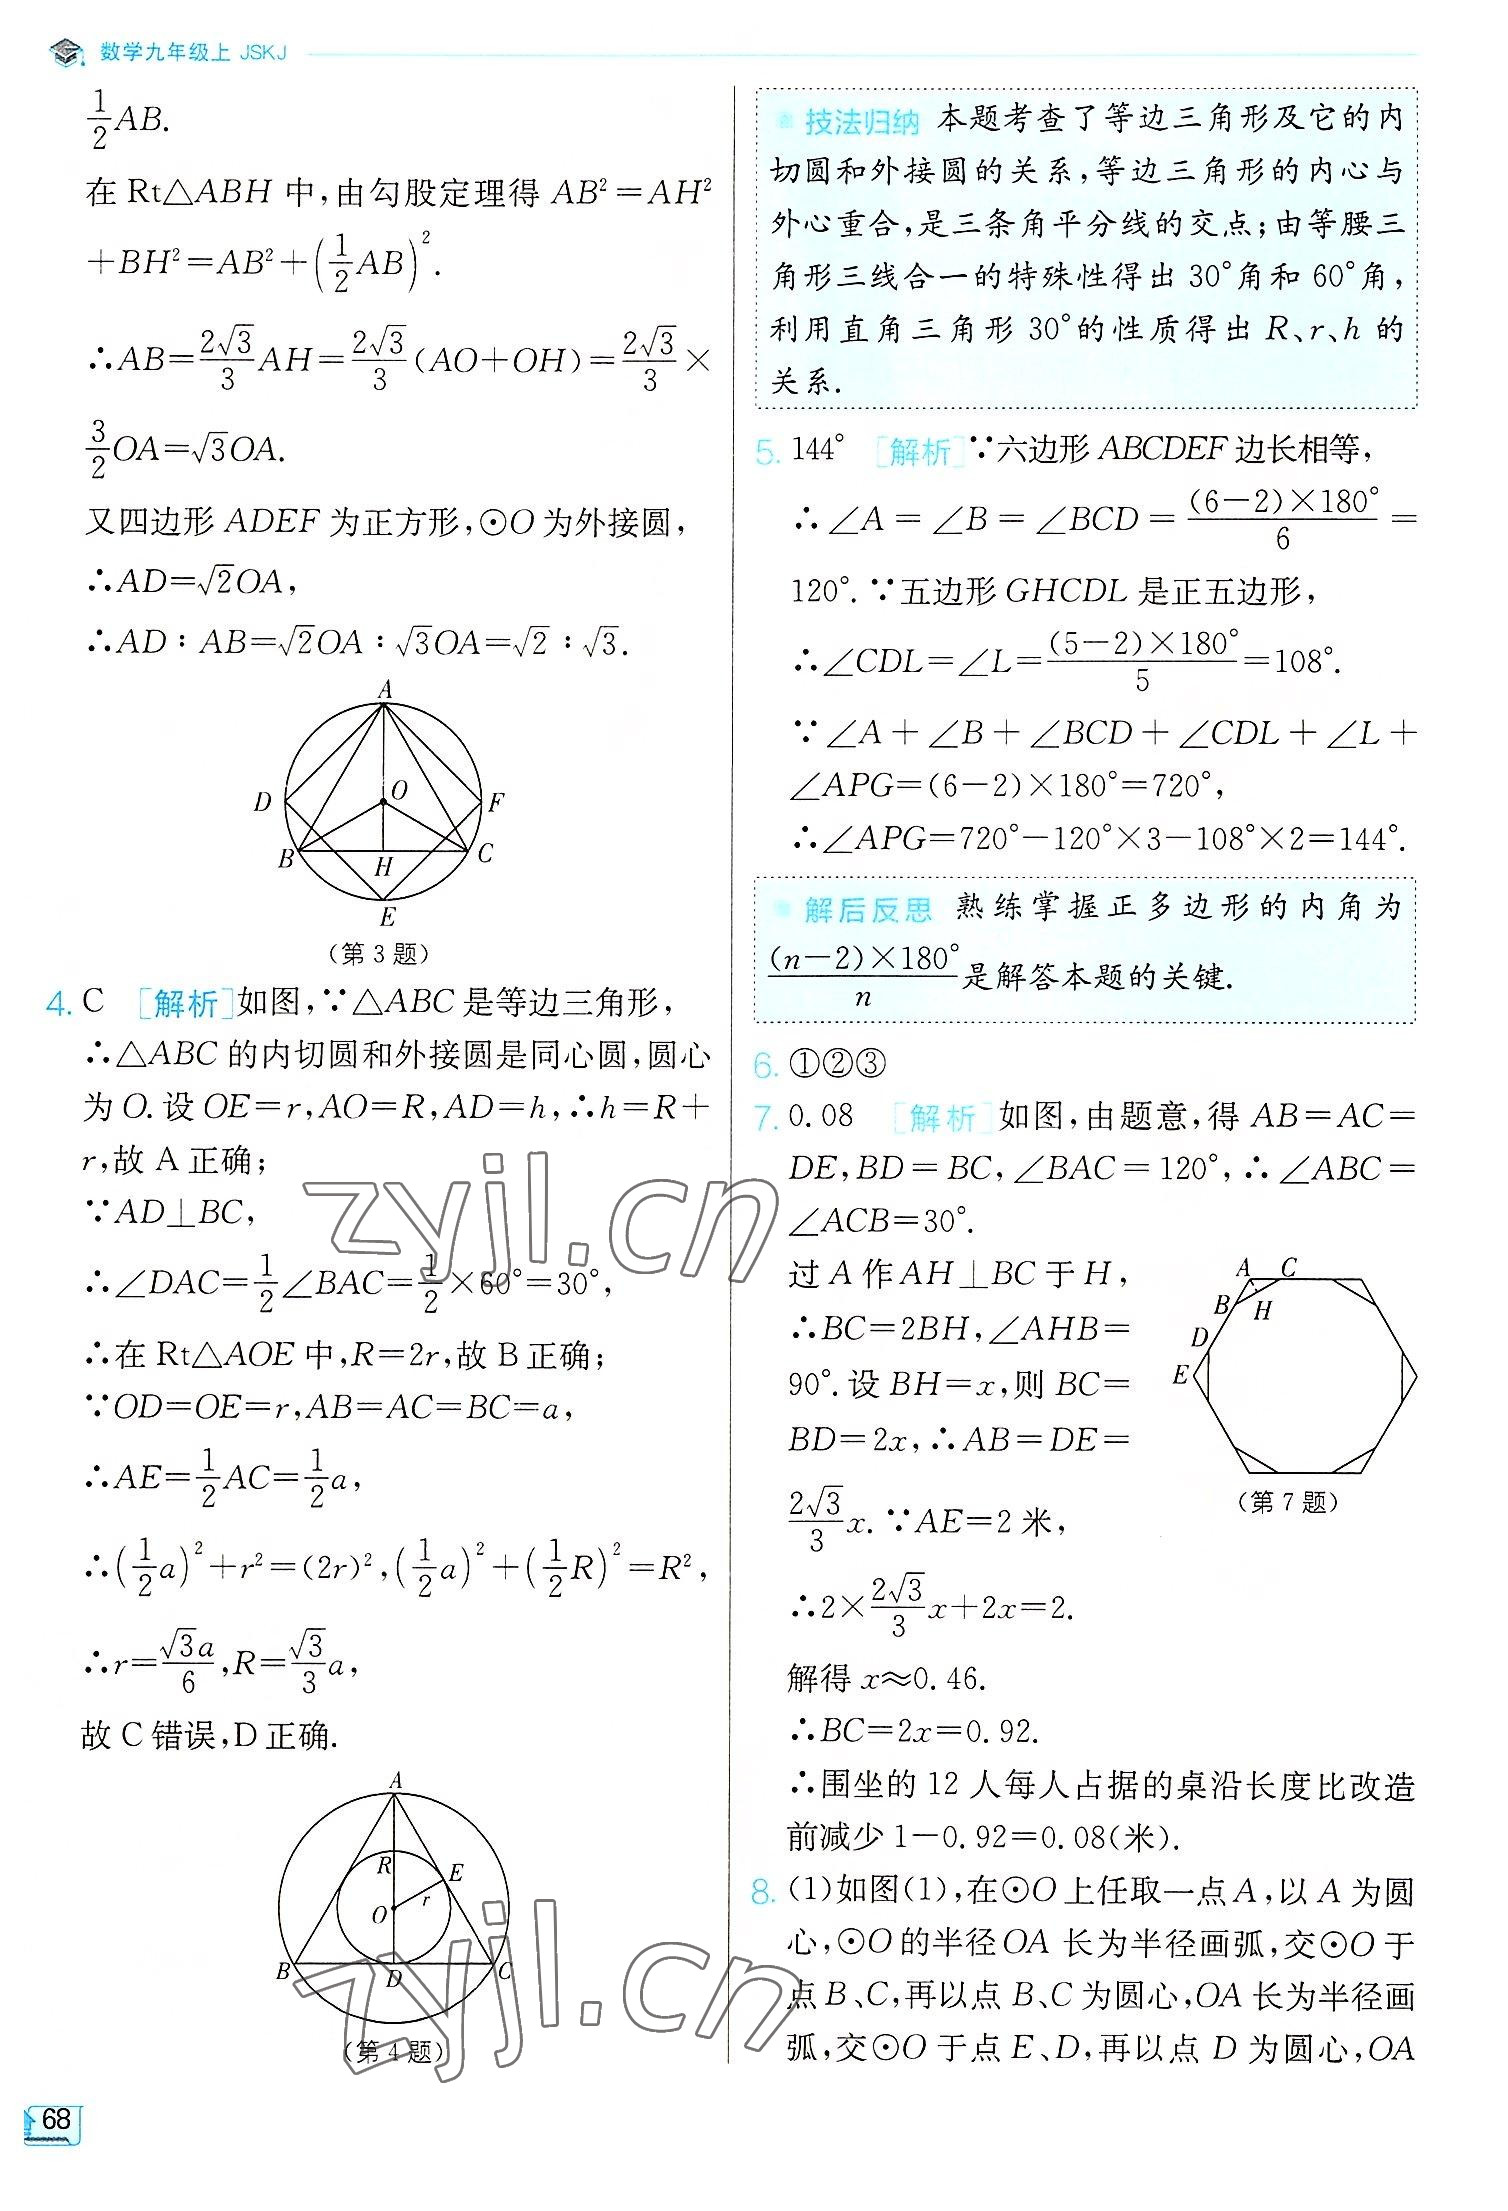 数学九年级上 JSKJ
1/2 AB.
在 Rt△ABH 中,由勾股定理得 AB²=AH²
+BH²=AB²+(1/2 AB)².
∴AB=2√3/3 AH=2√3/3 (AO+OH)=2√3/3 ×
3/2 OA=√3OA.
又四边形 ADEF 为正方形,⊙O 为外接圆,
∴AD=√2OA,
∴AD∶AB=√2OA∶√3OA=√2∶√3.
A
D
O
F
B
H
C
E
(第 3 题)
4. C [解析]如图,∵△ABC 是等边三角形,
∴△ABC 的内切圆和外接圆是同心圆,圆心
为 O. 设 OE=r,AO=R,AD=h,∴h=R+
r,故 A 正确;
∵AD⊥BC,
∴∠DAC=1/2∠BAC=1/2×60°=30°,
∴在 Rt△AOE 中,R=2r,故 B 正确;
∵OD=OE=r,AB=AC=BC=a,
∴AE=1/2 AC=1/2 a,
∴(1/2 a)²+r²=(2r)²,(1/2 a)²+(1/2 R)²=R²,
∴r=√3a/6,R=√3/3 a,
故 C 错误,D 正确.
A
R
E
O
r
B
D
C
(第 4 题)
68
技法归纳 本题考查了等边三角形及它的内
切圆和外接圆的关系,等边三角形的内心与
外心重合,是三条角平分线的交点;由等腰三
角形三线合一的特殊性得出 30°角和 60°角,
利用直角三角形 30°的性质得出 R、r、h 的
关系.
5. 144° [解析]∵六边形 ABCDEF 边长相等,
∴∠A=∠B=∠BCD=(6-2)×180°/6=
120°. ∵五边形 GHCDL 是正五边形,
∴∠CDL=∠L=(5-2)×180°/5=108°.
∵∠A+∠B+∠BCD+∠CDL+∠L+
∠APG=(6-2)×180°=720°,
∴∠APG=720°-120°×3-108°×2=144°.
解后反思 熟练掌握正多边形的内角为
(n-2)×180°/n 是解答本题的关键.
6. ①②③
7. 0.08 [解析]如图,由题意,得 AB=AC=
DE,BD=BC,∠BAC=120°,∴∠ABC=
∠ACB=30°.
过 A 作 AH⊥BC 于 H,
∴BC=2BH,∠AHB=
90°. 设 BH=x,则 BC=
BD=2x,∴AB=DE=
2√3/3 x. ∵AE=2 米,
∴2×2√3/3 x+2x=2.
A
C
B
H
D
E
(第 7 题)
解得 x≈0.46.
∴BC=2x=0.92.
∴围坐的 12 人每人占据的桌沿长度比改造
前减少 1-0.92=0.08(米).
8. (1)如图(1),在⊙O 上任取一点 A,以 A 为圆
心,⊙O 的半径 OA 长为半径画弧,交⊙O 于
点 B、C,再以点 B、C 为圆心,OA 长为半径画
弧,交⊙O 于点 E、D,再以点 D 为圆心,OA
zyjl.cn
zyjl.cn